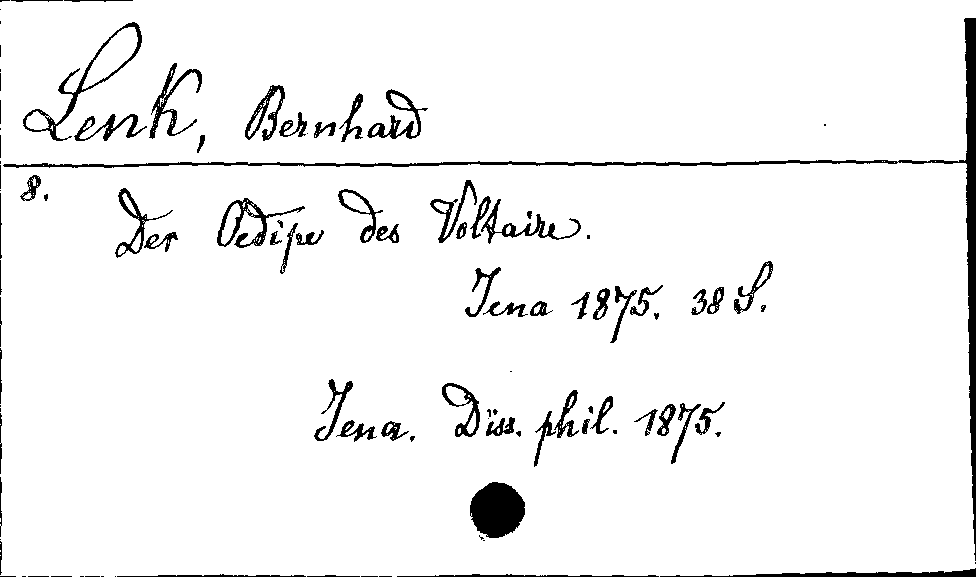 Lenk, Bernhard
8.
Der Oedipe des Voltaire.
Jena 1875. 38 S.
Jena. Diss. phil. 1875.